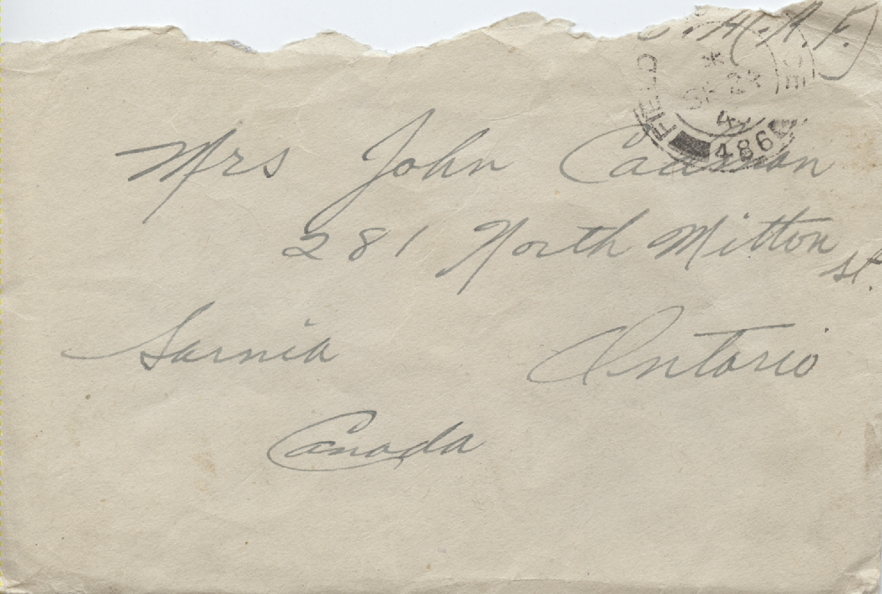 FIELD
SP 24
44
486
Mrs John Causson
281 North Mitton
st.
Sarnia Ontario
Canada